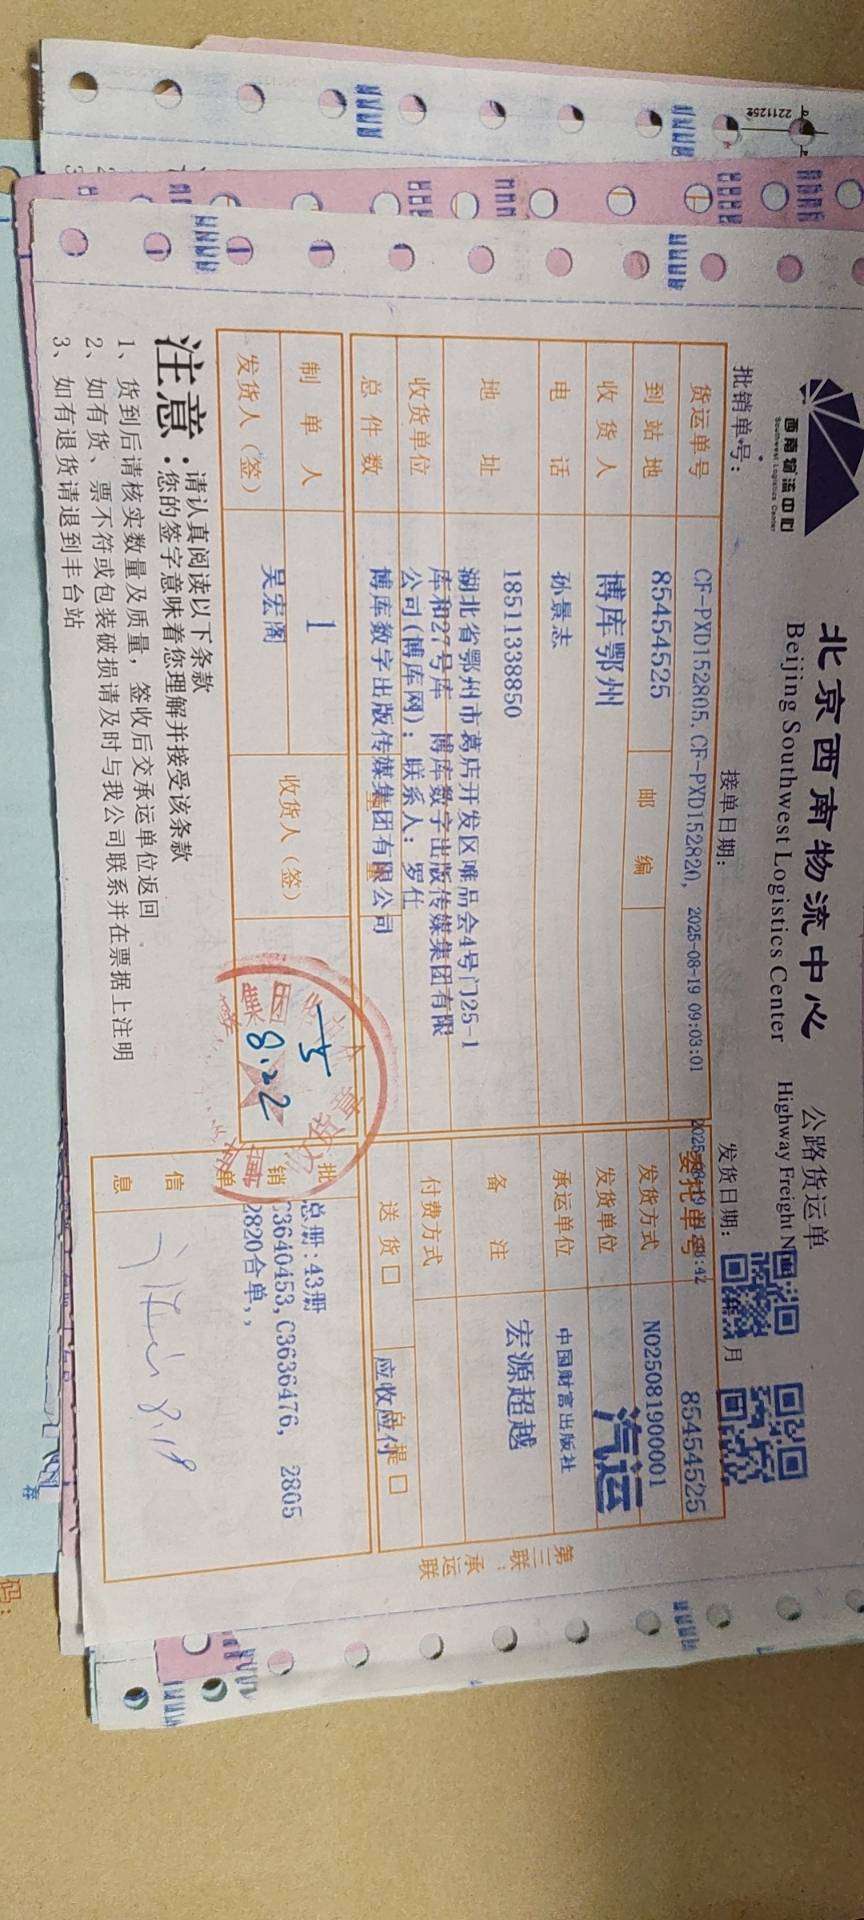 西南物流中心
Southwest Logistics Center
北京西南物流中心 公路货运单
Beijing Southwest Logistics Center Highway Freight N
批销单号： 接单日期： 发货日期： 年 月
货运单号 CF-PXD152805,CF-PXD152820, 2025-08-19 09:03:01
委托单号 85454525
到站地 85454525 邮编
发货方式 NO25081900001
收货人 博库鄂州
发货单位 汽运
电话 孙景志
承运单位 中国财富出版社
地址 18511338850
湖北省鄂州市葛店开发区唯品会4号门25-1
库和27号库 博库数字出版传媒集团有限
公司(博库网)；联系人：罗仕
备注 宏源超越
收货单位
付费方式
总件数 博库数字出版传媒集团有限公司
送货□ 自提□
应收应付
制单人 1 收货人（签）
发货人（签） 吴宏阁
8.22
批销单信息
总册:43册
C3640453,C3636476, 2805
2820合单,,
8.19
第三联：承运联
注意：请认真阅读以下条款
您的签字意味着您理解并接受该条款
1、货到后请核实数量及质量，签收后交承运单位返回
2、如有货、票不符或包装破损请及时与我公司联系并在票据上注明
3、如有退货请退到丰台站
2211252